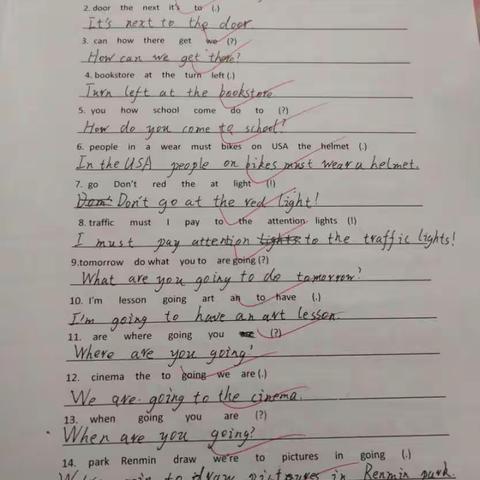 2. door the next it's to (.)
It's next to the door
3. can how there get we (?)
How can we get there?
4. bookstore at the turn left (.)
Turn left at the bookstore
5. you how school come do to (?)
How do you come to school?
6. people in a wear must bikes on USA the helmet (.)
In the USA people on bikes must wear a helmet.
7. go Don't red the at light (!)
Don't go at the red light!
8. traffic must I pay to the attention lights (!)
I must pay attention to the traffic lights!
9.tomorrow do what you to are going (?)
What are you going to do tomorrow?
10. I'm lesson going art an to have (.)
I'm going to have an art lesson.
11. are where going you (?)
Where are you going?
12. cinema the to going we are (.)
We are going to the cinema.
13. when going you are (?)
When are you going?
14. park Renmin draw we're to pictures in going (.)
going to draw pictures in Renmin park.